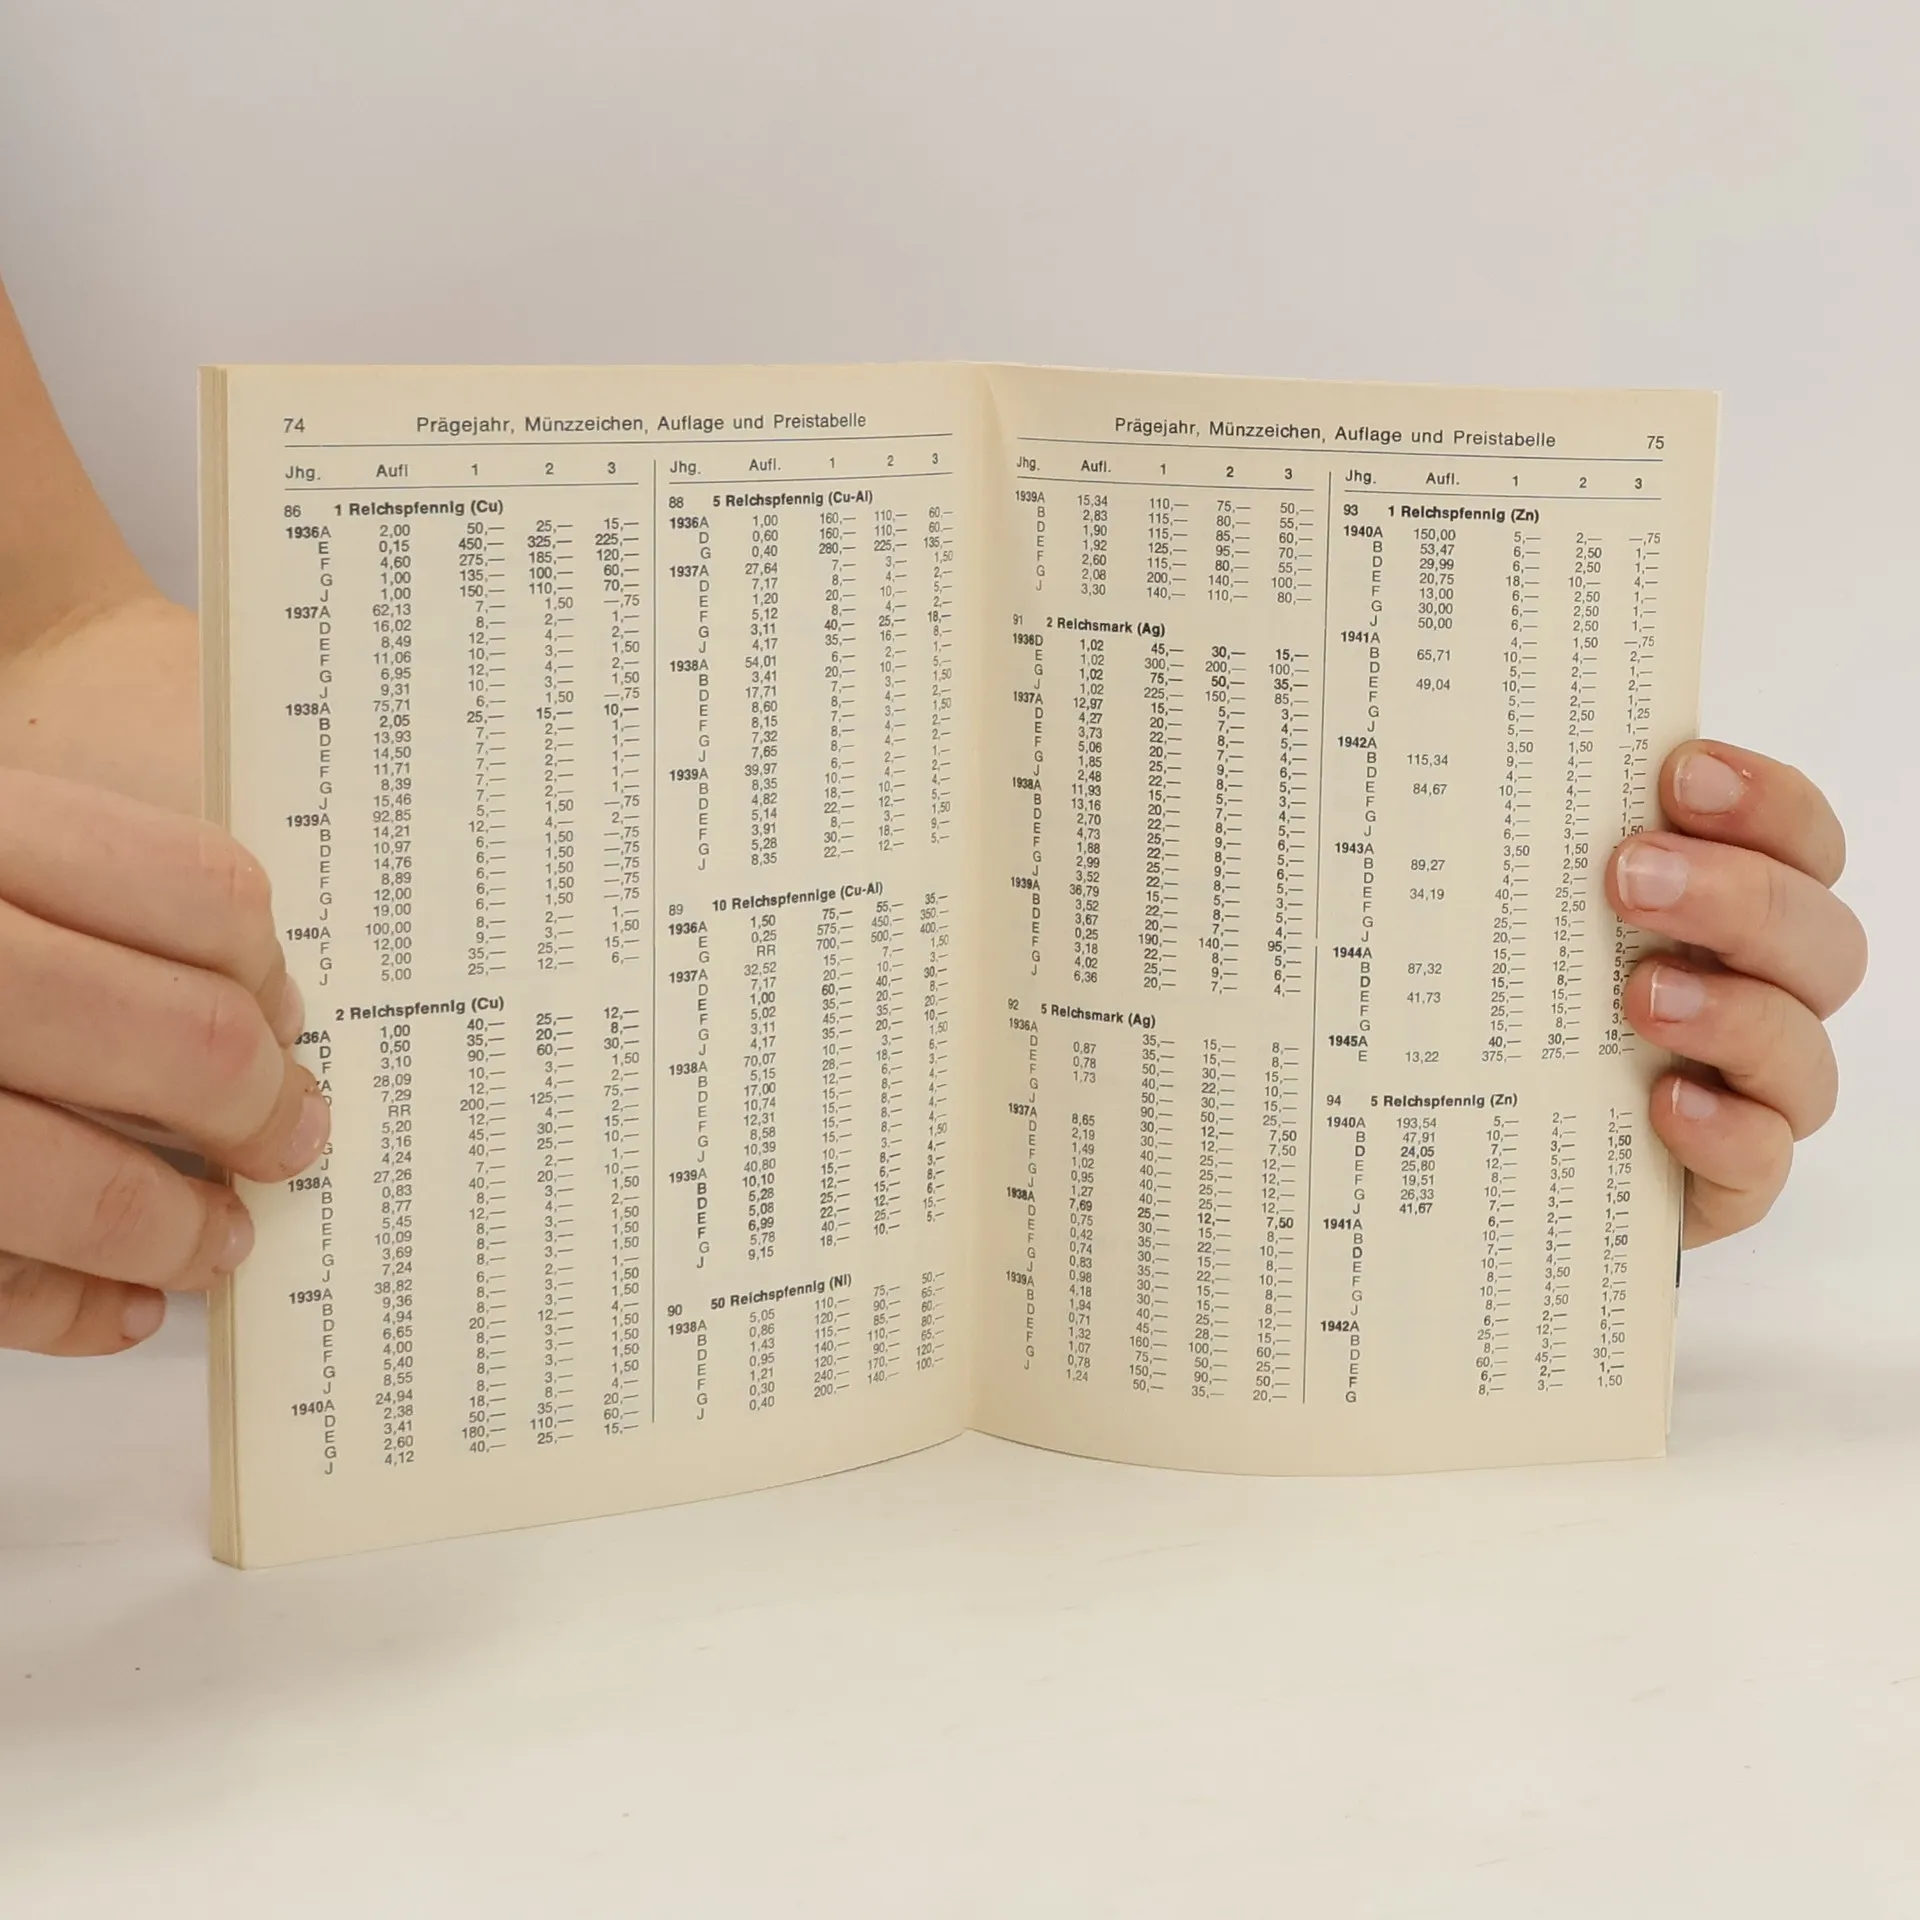 74 Prägejahr, Münzzeichen, Auflage und Preistabelle
Jhg. Aufl 1 2 3
86 1 Reichspfennig (Cu)
1936A 2,00 50,— 25,— 15,—
E 0,15 450,— 325,— 225,—
F 4,60 275,— 185,— 120,—
G 1,00 135,— 100,— 60,—
J 1,00 150,— 110,— 70,—
1937A 62,13 7,— 1,50 —,75
D 16,02 8,— 2,— 1,—
E 8,49 12,— 4,— 2,—
F 11,06 10,— 3,— 1,50
G 6,95 12,— 4,— 2,—
J 9,31 10,— 3,— 1,50
1938A 75,71 6,— 1,50 —,75
B 2,05 25,— 15,— 10,—
D 13,93 7,— 2,— 1,—
E 14,50 7,— 2,— 1,—
F 11,71 7,— 2,— 1,—
G 8,39 7,— 2,— 1,—
J 15,46 7,— 2,— 1,—
1939A 92,85 5,— 1,50 —,75
B 14,21 12,— 4,— 2,—
D 10,97 6,— 1,50 —,75
E 14,76 6,— 1,50 —,75
F 8,89 6,— 1,50 —,75
G 12,00 6,— 1,50 —,75
J 19,00 6,— 1,50 —,75
1940A 100,00 8,— 2,— 1,—
F 12,00 9,— 3,— 1,50
G 2,00 35,— 25,— 15,—
J 5,00 25,— 12,— 6,—
2 Reichspfennig (Cu)
36A 1,00 40,— 25,— 12,—
D 0,50 35,— 20,— 8,—
F 3,10 90,— 60,— 30,—
A 28,09 10,— 3,— 1,50
7,29 12,— 4,— 2,—
RR 200,— 125,— 75,—
5,20 12,— 4,— 2,—
G 3,16 45,— 30,— 15,—
J 4,24 40,— 25,— 10,—
1938A 27,26 7,— 2,— 1,—
B 0,83 40,— 20,— 10,—
D 8,77 8,— 3,— 1,50
E 5,45 12,— 4,— 2,—
F 10,09 8,— 3,— 1,50
G 3,69 8,— 3,— 1,50
J 7,24 8,— 3,— 1,50
1939A 38,82 6,— 2,— 1,—
B 9,36 8,— 3,— 1,50
D 4,94 8,— 3,— 1,50
E 6,65 20,— 12,— 4,—
F 4,00 8,— 3,— 1,50
G 5,40 8,— 3,— 1,50
J 8,55 8,— 3,— 1,50
1940A 24,94 8,— 3,— 1,50
D 2,38 18,— 8,— 4,—
E 3,41 50,— 35,— 20,—
G 2,60 180,— 110,— 60,—
J 4,12 40,— 25,— 15,—
Jhg. Aufl. 1 2 3
88 5 Reichspfennig (Cu-Al)
1936A 1,00 160,— 110,— 60,—
D 0,60 160,— 110,— 60,—
G 0,40 280,— 225,— 135,—
1937A 27,64 7,— 3,— 1,50
D 7,17 8,— 4,— 2,—
E 1,20 20,— 10,— 5,—
F 5,12 8,— 4,— 2,—
G 3,11 40,— 25,— 18,—
J 4,17 35,— 16,— 8,—
1938A 54,01 6,— 2,— 1,—
B 3,41 20,— 10,— 5,—
D 17,71 7,— 3,— 1,50
E 8,60 8,— 4,— 2,—
F 8,15 7,— 3,— 1,50
G 7,32 8,— 4,— 2,—
J 7,65 8,— 4,— 2,—
1939A 39,97 6,— 2,— 1,—
B 8,35 10,— 4,— 2,—
D 4,82 18,— 10,— 4,—
E 5,14 22,— 12,— 5,—
F 3,91 8,— 3,— 1,50
G 5,28 30,— 18,— 9,—
J 8,35 22,— 12,— 5,—
89 10 Reichspfennige (Cu-Al)
1936A 1,50 75,— 55,— 35,—
E 0,25 575,— 450,— 350,—
G RR 700,— 500,— 400,—
1937A 32,52 15,— 7,— 1,50
D 7,17 20,— 10,— 3,—
E 1,00 60,— 40,— 30,—
F 5,02 35,— 20,— 8,—
G 3,11 45,— 35,— 20,—
J 4,17 35,— 20,— 10,—
1938A 70,07 10,— 3,— 1,50
B 5,15 28,— 18,— 6,—
D 17,00 12,— 6,— 3,—
E 10,74 15,— 8,— 4,—
F 12,31 15,— 8,— 4,—
G 8,58 15,— 8,— 4,—
J 10,39 15,— 8,— 4,—
1939A 40,80 10,— 3,— 1,50
B 10,10 15,— 8,— 4,—
D 5,28 12,— 6,— 3,—
E 5,08 25,— 15,— 8,—
F 6,99 22,— 12,— 6,—
G 5,78 40,— 25,— 15,—
J 9,15 18,— 10,— 5,—
90 50 Reichspfennig (NI)
1938A 5,05 110,— 75,— 50,—
B 0,86 120,— 90,— 65,—
D 1,43 115,— 85,— 60,—
E 0,95 140,— 110,— 80,—
F 1,21 120,— 90,— 65,—
G 0,30 240,— 170,— 120,—
J 0,40 200,— 140,— 100,—
Prägejahr, Münzzeichen, Auflage und Preistabelle 75
Jhg. Aufl. 1 2 3
1939A 15,34 110,— 75,— 50,—
B 2,83 115,— 80,— 55,—
D 1,90 115,— 85,— 60,—
E 1,92 125,— 95,— 70,—
F 2,60 115,— 80,— 55,—
G 2,08 200,— 140,— 100,—
J 3,30 140,— 110,— 80,—
91 2 Reichsmark (Ag)
1936D 1,02 45,— 30,— 15,—
E 1,02 300,— 200,— 100,—
G 1,02 75,— 50,— 35,—
J 1,02 225,— 150,— 85,—
1937A 12,97 15,— 5,— 3,—
D 4,27 20,— 7,— 4,—
E 3,73 22,— 8,— 5,—
F 5,06 20,— 7,— 4,—
G 1,85 25,— 9,— 6,—
J 2,48 22,— 8,— 5,—
1938A 11,93 15,— 5,— 3,—
B 13,16 20,— 7,— 4,—
D 2,70 22,— 8,— 5,—
E 4,73 25,— 9,— 6,—
F 1,88 22,— 8,— 5,—
G 2,99 25,— 9,— 6,—
J 3,52 22,— 8,— 5,—
1939A 36,79 15,— 5,— 3,—
B 3,52 22,— 8,— 5,—
D 3,67 20,— 7,— 4,—
E 0,25 190,— 140,— 95,—
F 3,18 22,— 8,— 5,—
G 4,02 25,— 9,— 6,—
J 6,36 20,— 7,— 4,—
92 5 Reichsmark (Ag)
1936A 35,— 15,— 8,—
D 0,87 35,— 15,— 8,—
E 0,78 50,— 30,— 15,—
F 1,73 40,— 22,— 10,—
G 50,— 30,— 15,—
J 90,— 50,— 25,—
1937A 8,65 30,— 12,— 7,50
D 2,19 30,— 12,— 7,50
E 1,49 40,— 25,— 12,—
F 1,02 40,— 25,— 12,—
G 0,95 40,— 25,— 12,—
J 1,27 40,— 25,— 12,—
1938A 7,69 25,— 12,— 7,50
D 0,75 30,— 15,— 8,—
E 0,42 35,— 22,— 10,—
F 0,74 30,— 15,— 8,—
G 0,83 35,— 22,— 10,—
0,98
1939A 4,18 30,— 15,— 8,—
B 1,94 40,— 25,— 12,—
D 0,71 45,— 28,— 15,—
E 1,32 160,— 100,— 60,—
F 1,07 75,— 50,— 25,—
G 0,78 150,— 90,— 50,—
J 1,24 50,— 35,— 20,—
Jhg. Aufl. 1 2 3
93 1 Reichspfennig (Zn)
1940A 150,00 5,— 2,— —,75
B 53,47 6,— 2,50 1,—
D 29,99 6,— 2,50 1,—
E 20,75 18,— 10,— 4,—
F 13,00 6,— 2,50 1,—
G 30,00 6,— 2,50 1,—
J 50,00 6,— 2,50 1,—
1941A 4,— 1,50 —,75
B 65,71 10,— 4,— 2,—
D 5,— 2,— 1,—
E 49,04 10,— 4,— 2,—
F 5,— 2,— 1,—
G 6,— 2,50 1,25
J 5,— 2,— 1,—
1942A 3,50 1,50 —,75
B 115,34 9,— 4,— 2,—
D 4,— 2,— 1,—
E 84,67 10,— 4,— 2,—
F 4,— 2,— 1,—
G 4,— 2,— 1,—
J 6,— 3,— 1,50
1943A 3,50 1,50
B 89,27 5,— 2,50
D 4,— 2,—
E 34,19 40,— 25,—
F 5,— 2,50
G 25,— 15,—
J 20,— 12,— 5,—
1944A 15,— 8,— 2,—
B 87,32 20,— 12,— 5,—
D 15,— 8,— 3,
E 41,73 25,— 15,— 6,
F 25,— 15,— 6,
G 15,— 8,— 3,—
1945A 40,— 30,— 18,—
E 13,22 375,— 275,— 200,—
94 5 Reichspfennig (Zn)
1940A 193,54 5,— 2,— 1,—
B 47,91 10,— 4,— 2,—
D 24,05 7,— 3,— 1,50
E 25,80 12,— 5,— 2,50
F 19,51 8,— 3,50 1,75
G 26,33 10,— 4,— 2,—
J 41,67 7,— 3,— 1,50
1941A 6,— 2,— 1,—
B 10,— 4,— 2,—
D 7,— 3,— 1,50
E 10,— 4,— 2,—
F 8,— 3,50 1,75
G 10,— 4,— 2,—
J 8,— 3,50 1,75
1942A 6,— 2,— 1,—
B 25,— 12,— 6,—
D 8,— 3,— 1,50
E 60,— 45,— 30,—
F 6,— 2,— 1,—
G 8,— 3,— 1,50